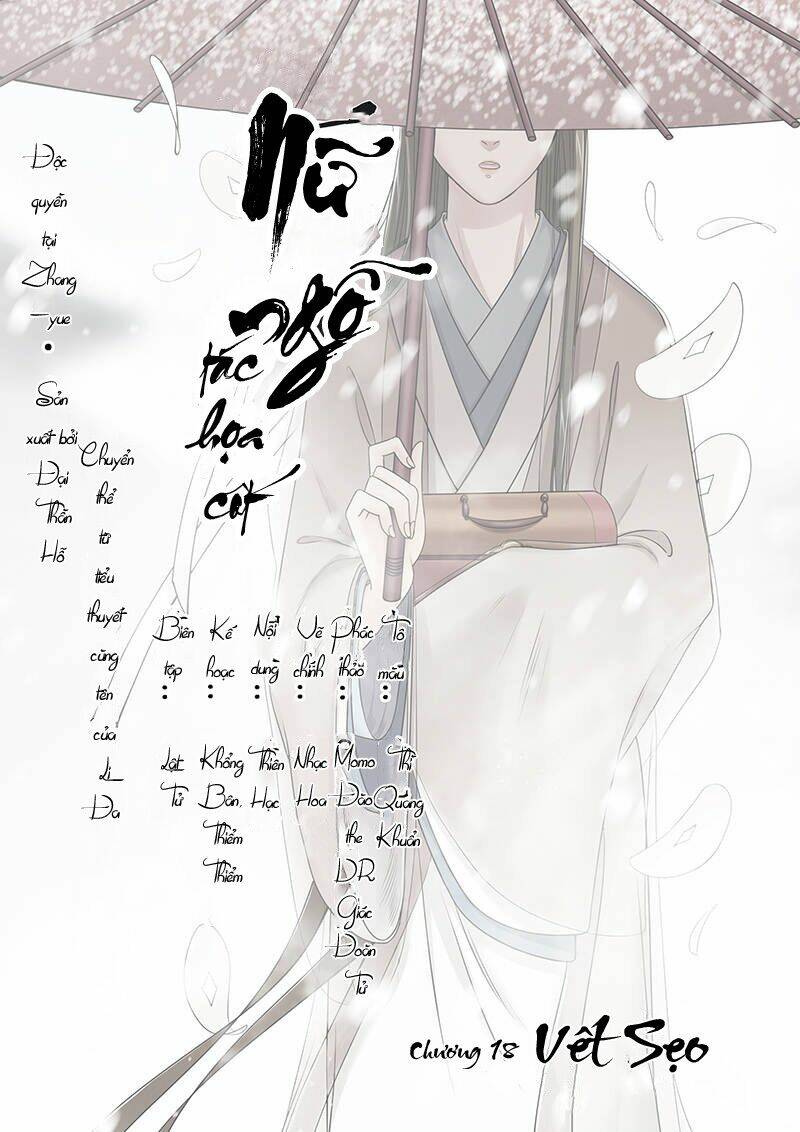 Nữ
ngỗ
tác
họa
cốt
Độc
quyền
tại
Zhang
-yue
•
Sản
xuất bởi
Đại
Thần
Hỗ
Chuyển
thể
từ
tiểu
thuyết
cùng
tên
của
Li
Đa
Biên
tập
:
Lật
Tử
Kế
hoạc
:
Khổng
Bân,
Thiểm
Thiểm
Nội
dung
:
Thiên
Hạc
Vẽ
chính
:
Nhạc
Hoa
Phác
thảo
:
Momo
Đào
the
DR
Giác
Đoàn
Tử
Tô
màu
:
Thi
Quảng
Khuẩn
Chương 18 Vết Sẹo